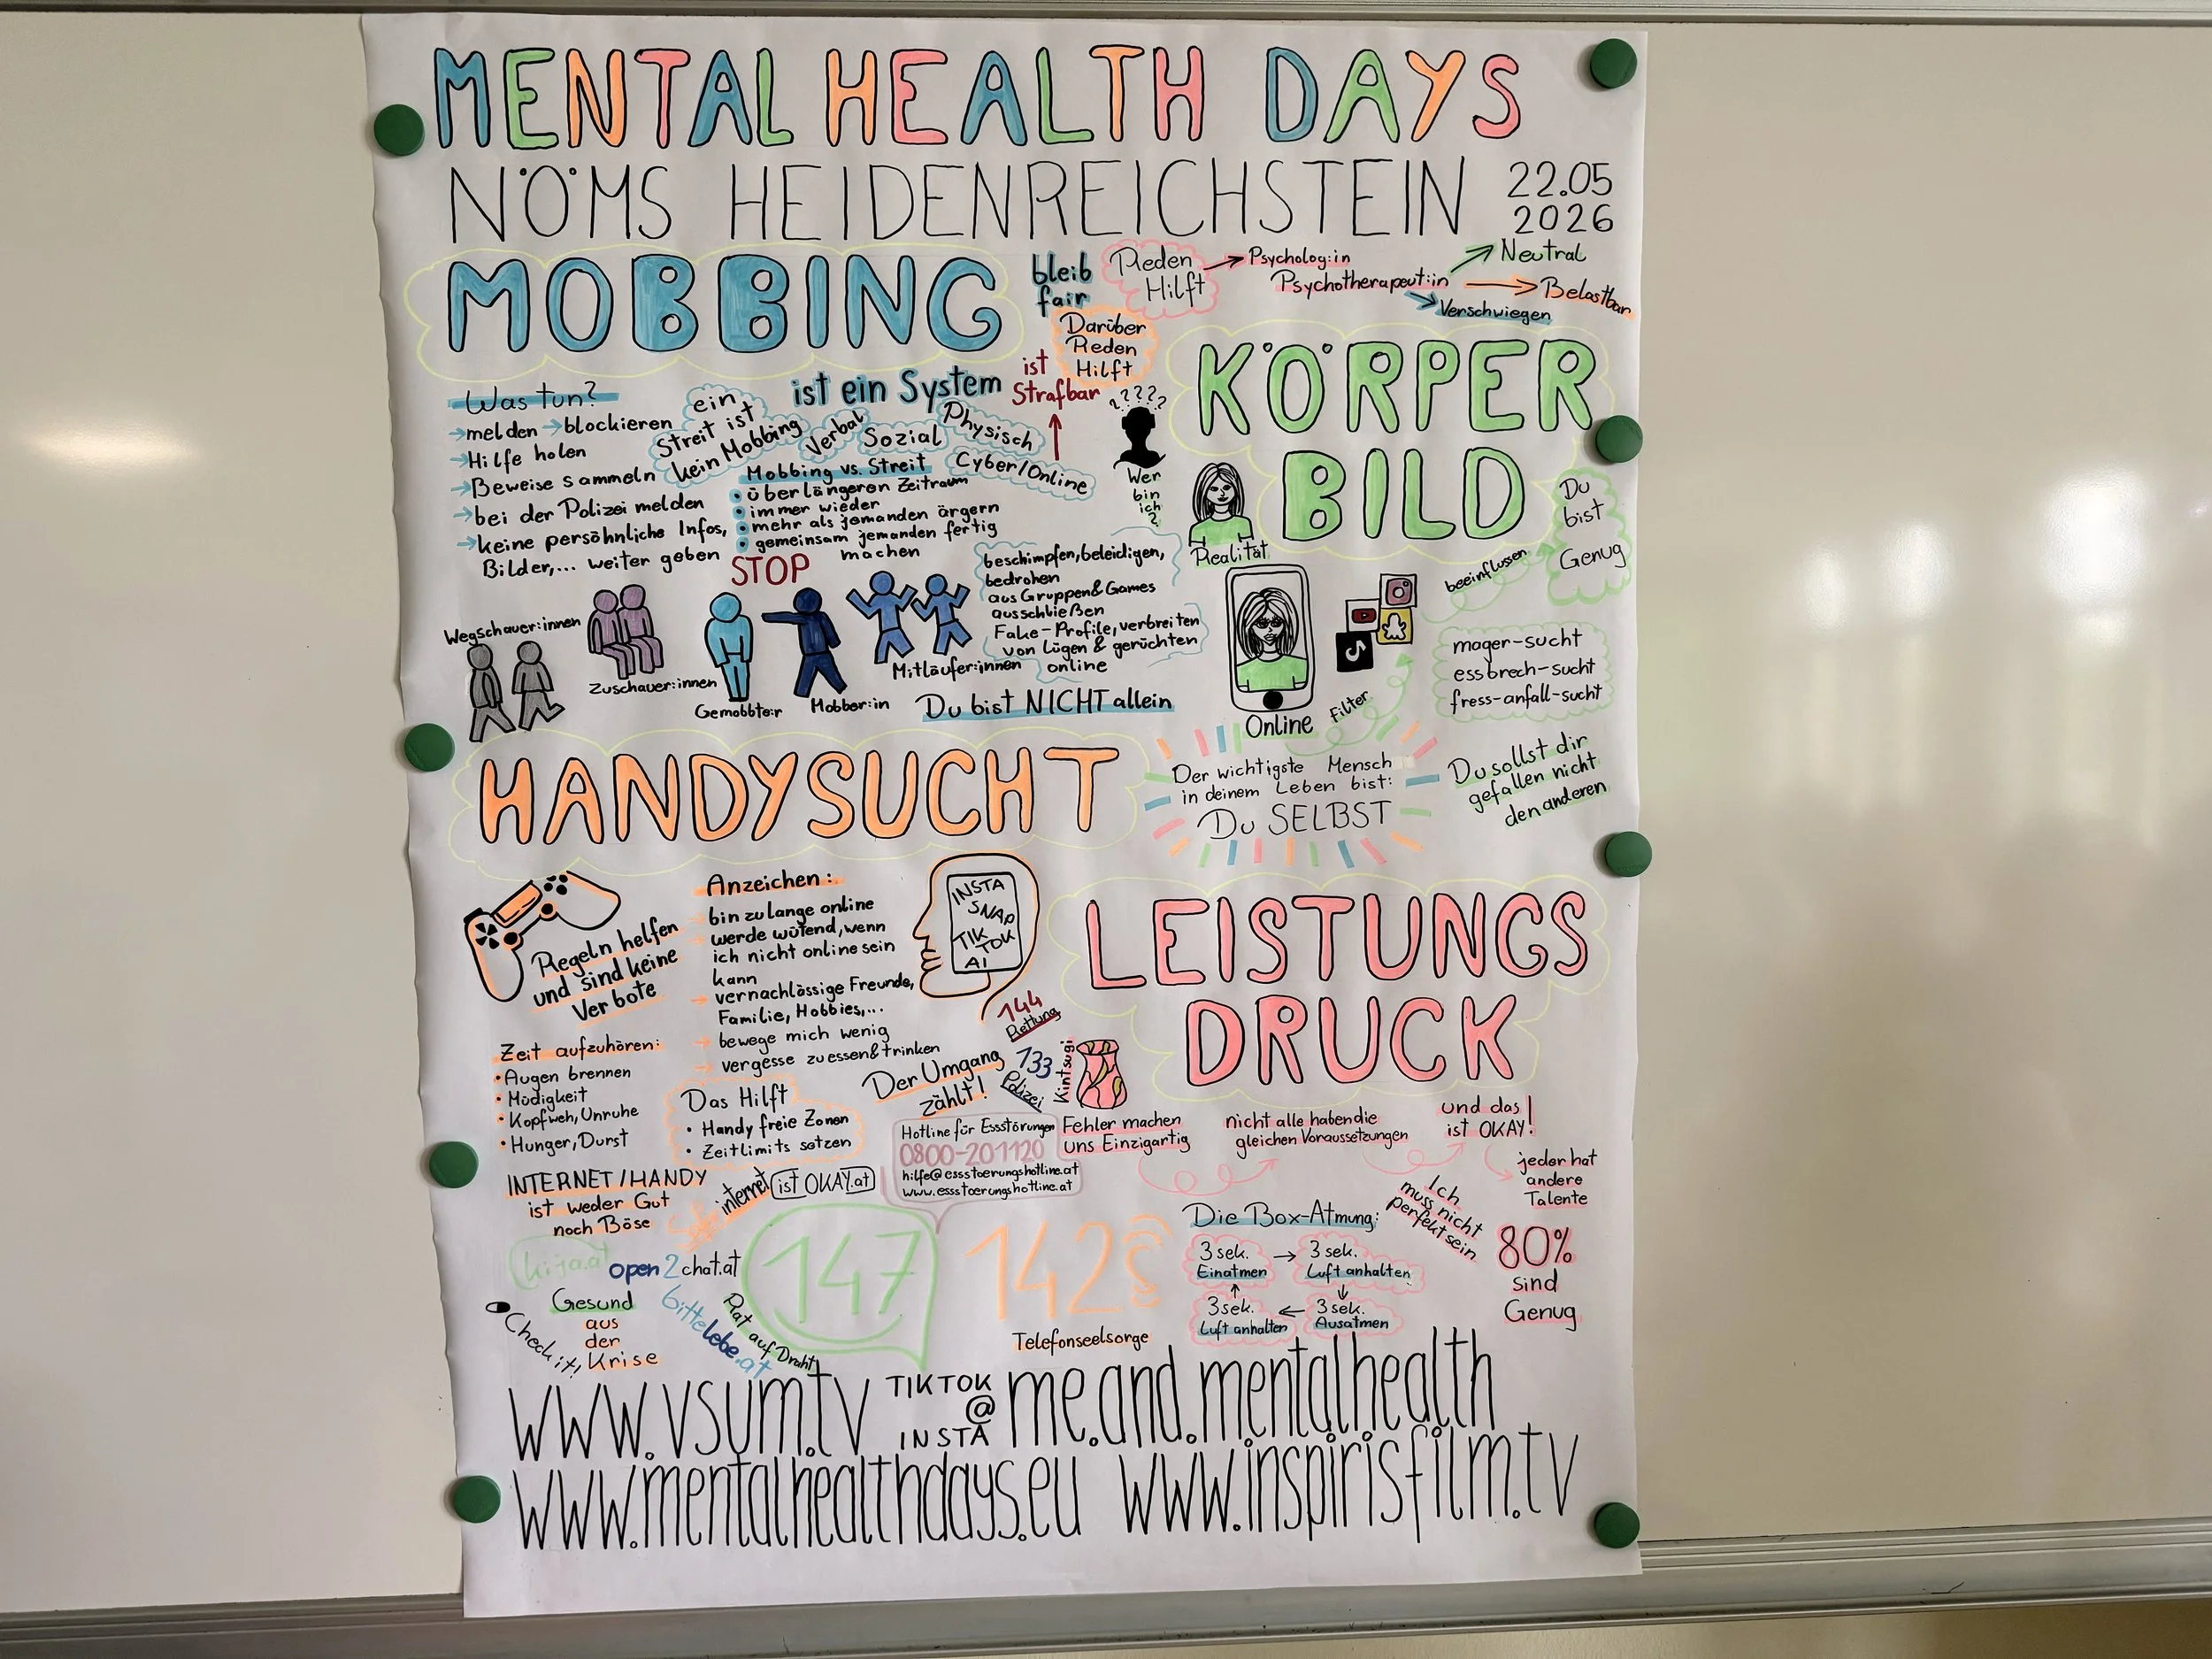 MENTAL HEALTH DAYS
NÖMS HEIDENREICHSTEIN
22.05
2026
MOBBING
bleib
fair
Reden
Hilft
Psycholog:in
Psychotherapeut:in
Neutral
Belastbar
Verschwiegen
Darüber
Reden
Hilft
ist ein System
ist
Strafbar
Was tun?
→melden →blockieren
→Hilfe holen
→Beweise sammeln
→bei der Polizei melden
→keine persöhnliche Infos,
Bilder,... weiter geben
ein
Streit ist
kein Mobbing
Verbal
Sozial
Physisch
Cyber/Online
Mobbing vs. Streit
• über längeren Zeitraum
• immer wieder
• mehr als jemanden ärgern
• gemeinsam jemanden fertig
machen
STOP
beschimpfen, beleidigen,
bedrohen
aus Gruppen & Games
ausschließen
Fake-Profile, verbreiten
von lügen & gerüchten
online
Wegschauer:innen
Zuschauer:innen
Gemobbte:r
Mobber:in
Mitläufer:innen
Du bist NICHT allein
????
Wer
bin
ich
?
KÖRPER
BILD
Realität
Online
Filter
beeinflussen
Du
bist
Genug
mager-sucht
essbrech-sucht
fress-anfall-sucht
Der wichtigste Mensch
in deinem Leben bist:
Du SELBST
Du sollst dir
gefallen nicht
den anderen
HANDYSUCHT
Regeln helfen
und sind keine
Verbote
Anzeichen:
bin zu lange online
werde wütend, wenn
ich nicht online sein
kann
vernachlässige Freunde,
Familie, Hobbies,...
bewege mich wenig
vergesse zu essen & trinken
INSTA
SNAP
TIK
TOK
AI
Zeit aufzuhören:
• Augen brennen
• Müdigkeit
• Kopfweh, Unruhe
• Hunger, Durst
Das Hilft
• Handy freie Zonen
• Zeitlimits setzen
Der Umgang
zählt!
144
Rettung
133
Polizei
Kintsugi
LEISTUNGS
DRUCK
Fehler machen
uns Einzigartig
nicht alle haben die
gleichen Voraussetzungen
und das
ist OKAY!
jeder hat
andere
Talente
Ich
muss nicht
perfekt sein
80%
sind
Genug
Hotline für Essstörungen
0800-201120
hilfe@essstoerungshotline.at
www.essstoerungshotline.at
INTERNET/HANDY
ist weder Gut
noch Böse
internet ist OKAY.at
kija.at
open2chat.at
Gesund
aus
der
Krise
Check it!
bittelebe.at
Rat auf Draht
147
142
Telefonseelsorge
Die Box-Atmung:
3 sek. → 3 sek.
Einatmen Luft anhalten
3 sek. ← 3 sek.
Luft anhalten Ausatmen
www.vsum.tv TIKTOK @ INSTA me.and.mentalhealth
www.mentalhealthdays.eu www.inspirisfilm.tv